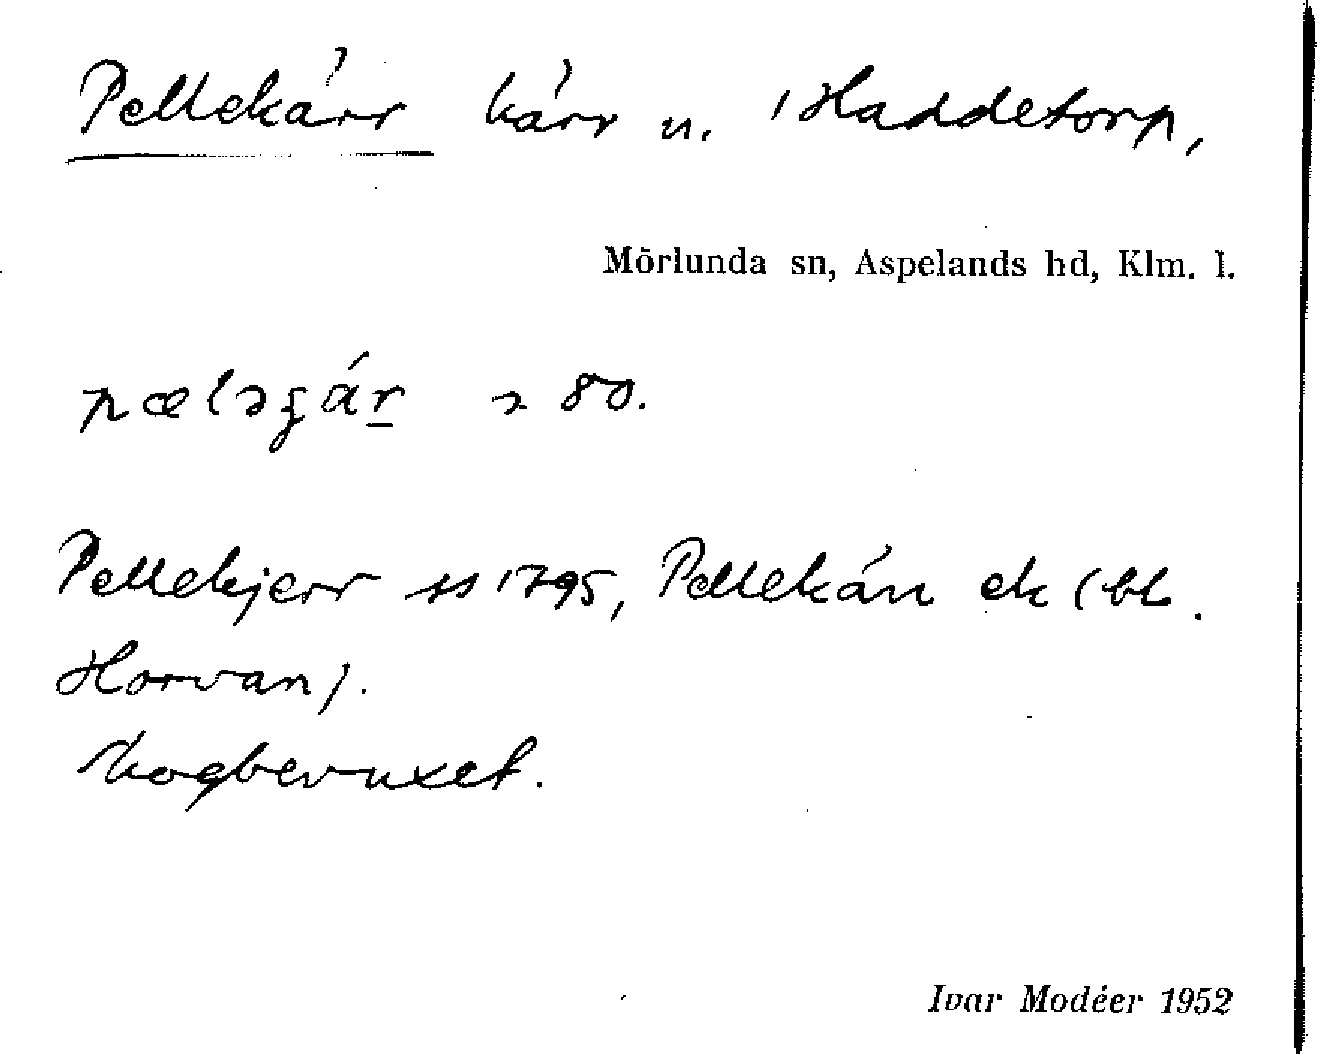 Pellekärr kärr n. Haddetorp,
Mörlunda sn, Aspelands hd, Klm. l.
80.
Pellekjerr 1795, Pellekärr ek (bl.
Horvan).
Skogbevuxet.
Ivar Modéer 1952